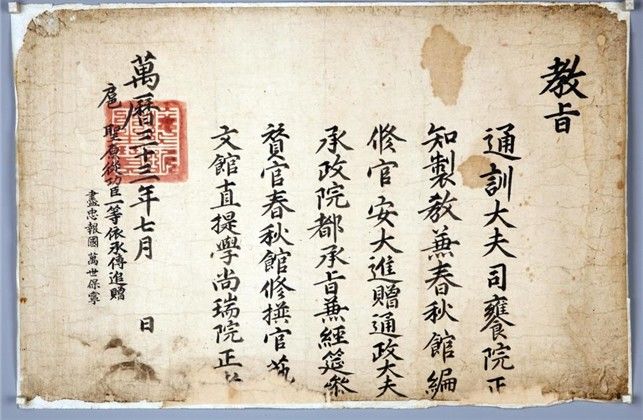 敎旨
通訓大夫司饔院正
知製敎兼春秋館編
修官安大進贈通政大夫
承政院都承旨兼經筵參
贊官春秋館修撰官
文館直提學尚瑞院正
萬曆三十三年七月 日
扈聖原從功臣一等依承傳追贈
盡忠報國 萬世保寧